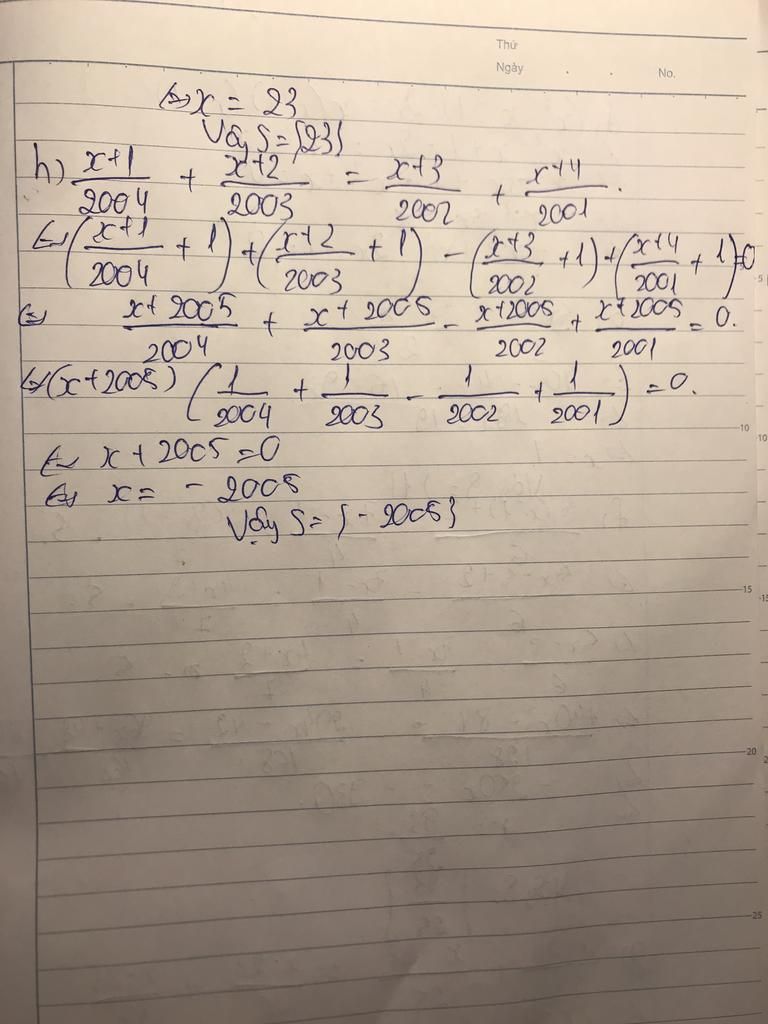 Thứ
Ngày . . No.
⇔ x = 23
Vậy S = {23}
h) x+1/2004 + x+2/2003 = x+3/2002 + x+4/2001.
⇔ (x+1/2004 + 1) + (x+2/2003 + 1) - (x+3/2002 + 1) + (x+4/2001 + 1) = 0
⇔ x+2005/2004 + x+2005/2003 - x+2005/2002 + x+2005/2001 = 0.
⇔ (x+2005) (1/2004 + 1/2003 - 1/2002 + 1/2001) = 0.
⇔ x + 2005 = 0
⇔ x = - 2005
Vậy S = {- 2005}
5
10
10
15
15
20
25